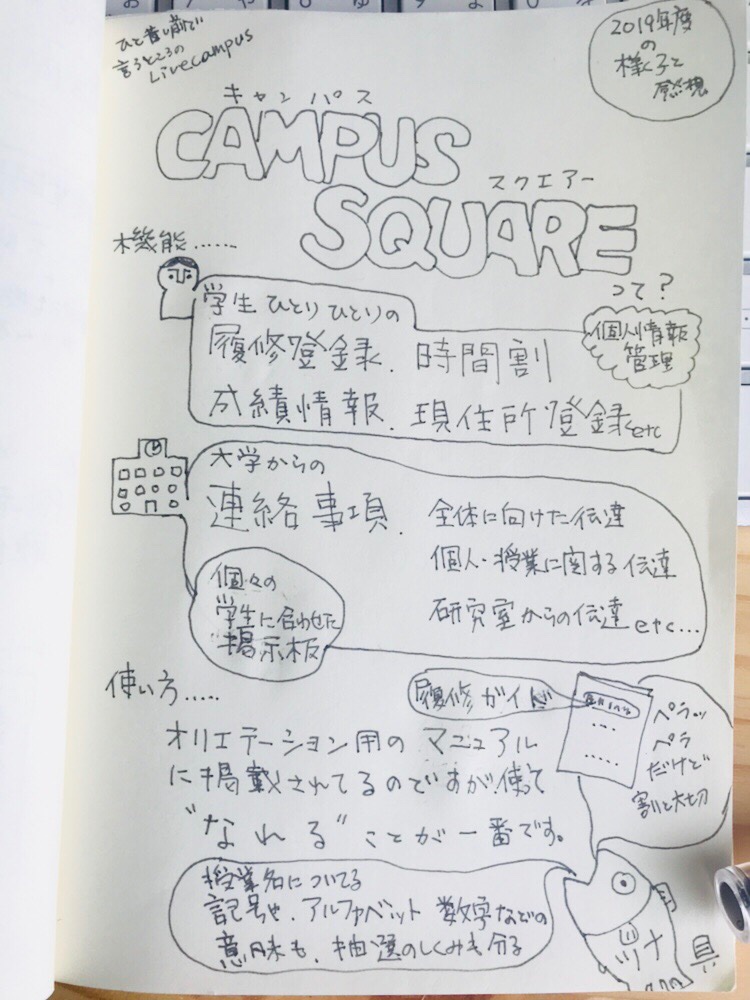 ひと昔前で
言うところの
Livecampus
2019年度
の
様子と
感想
キャンパス
CAMPUS
スクエアー
SQUARE
って?
機能……
学生ひとりひとりの
履修登録、時間割
成績情報、現住所登録etc
個人情報
管理
大学からの
連絡事項、
全体に向けた伝達
個人・授業に関する伝達
研究室からの伝達etc...
個々の
学生に合わせた
掲示板
使い方……
履修ガイド
オリエテーション用のマニュアル
に掲載されてるのですが使って
"なれる"ことが一番です。
ペラッ
ペラ
だけど
割と大切
授業名についてる
記号や、アルファベット数字などの
意味も、抽選のしくみも分る
ツナ
具